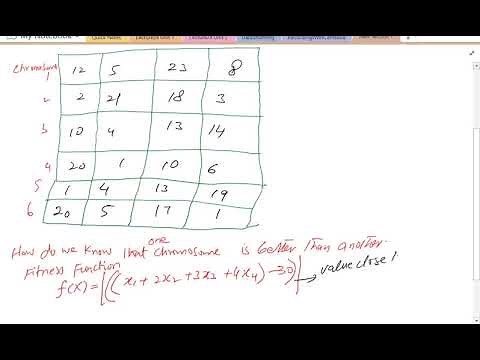 My Notebook
Chromosome
1 12 5 23 8
2 2 21 18 3
3 10 4 13 14
4 20 1 10 6
5 1 4 13 19
6 20 5 17 1
one
How do we know that chromosome is better than another.
Fitness Function
f(x) = |((x1 + 2x2 + 3x3 + 4x4) - 30)| → value close 1